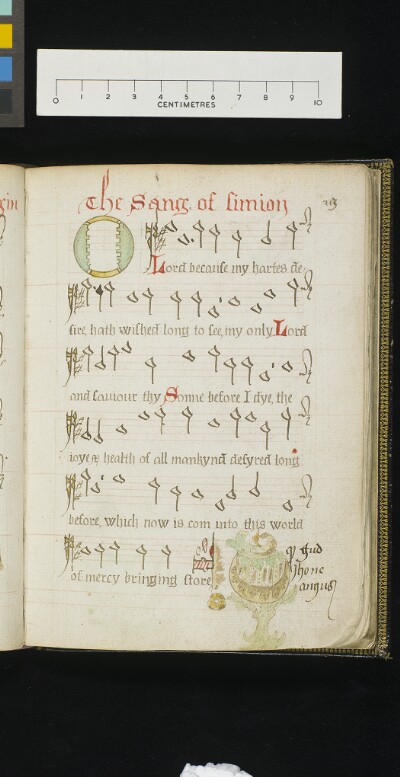 0 1 2 3 4 5 6 7 8 9 10
CENTIMETRES
The Sang of simion
O
Lord because my hartes de-
sire hath wished long to see, my only Lord
and saviour thy Sonne before I dye, the
ioye health of all mankynd desyred long
before, which now is com into this world
of mercy bringing store
gud
Jhone
angus